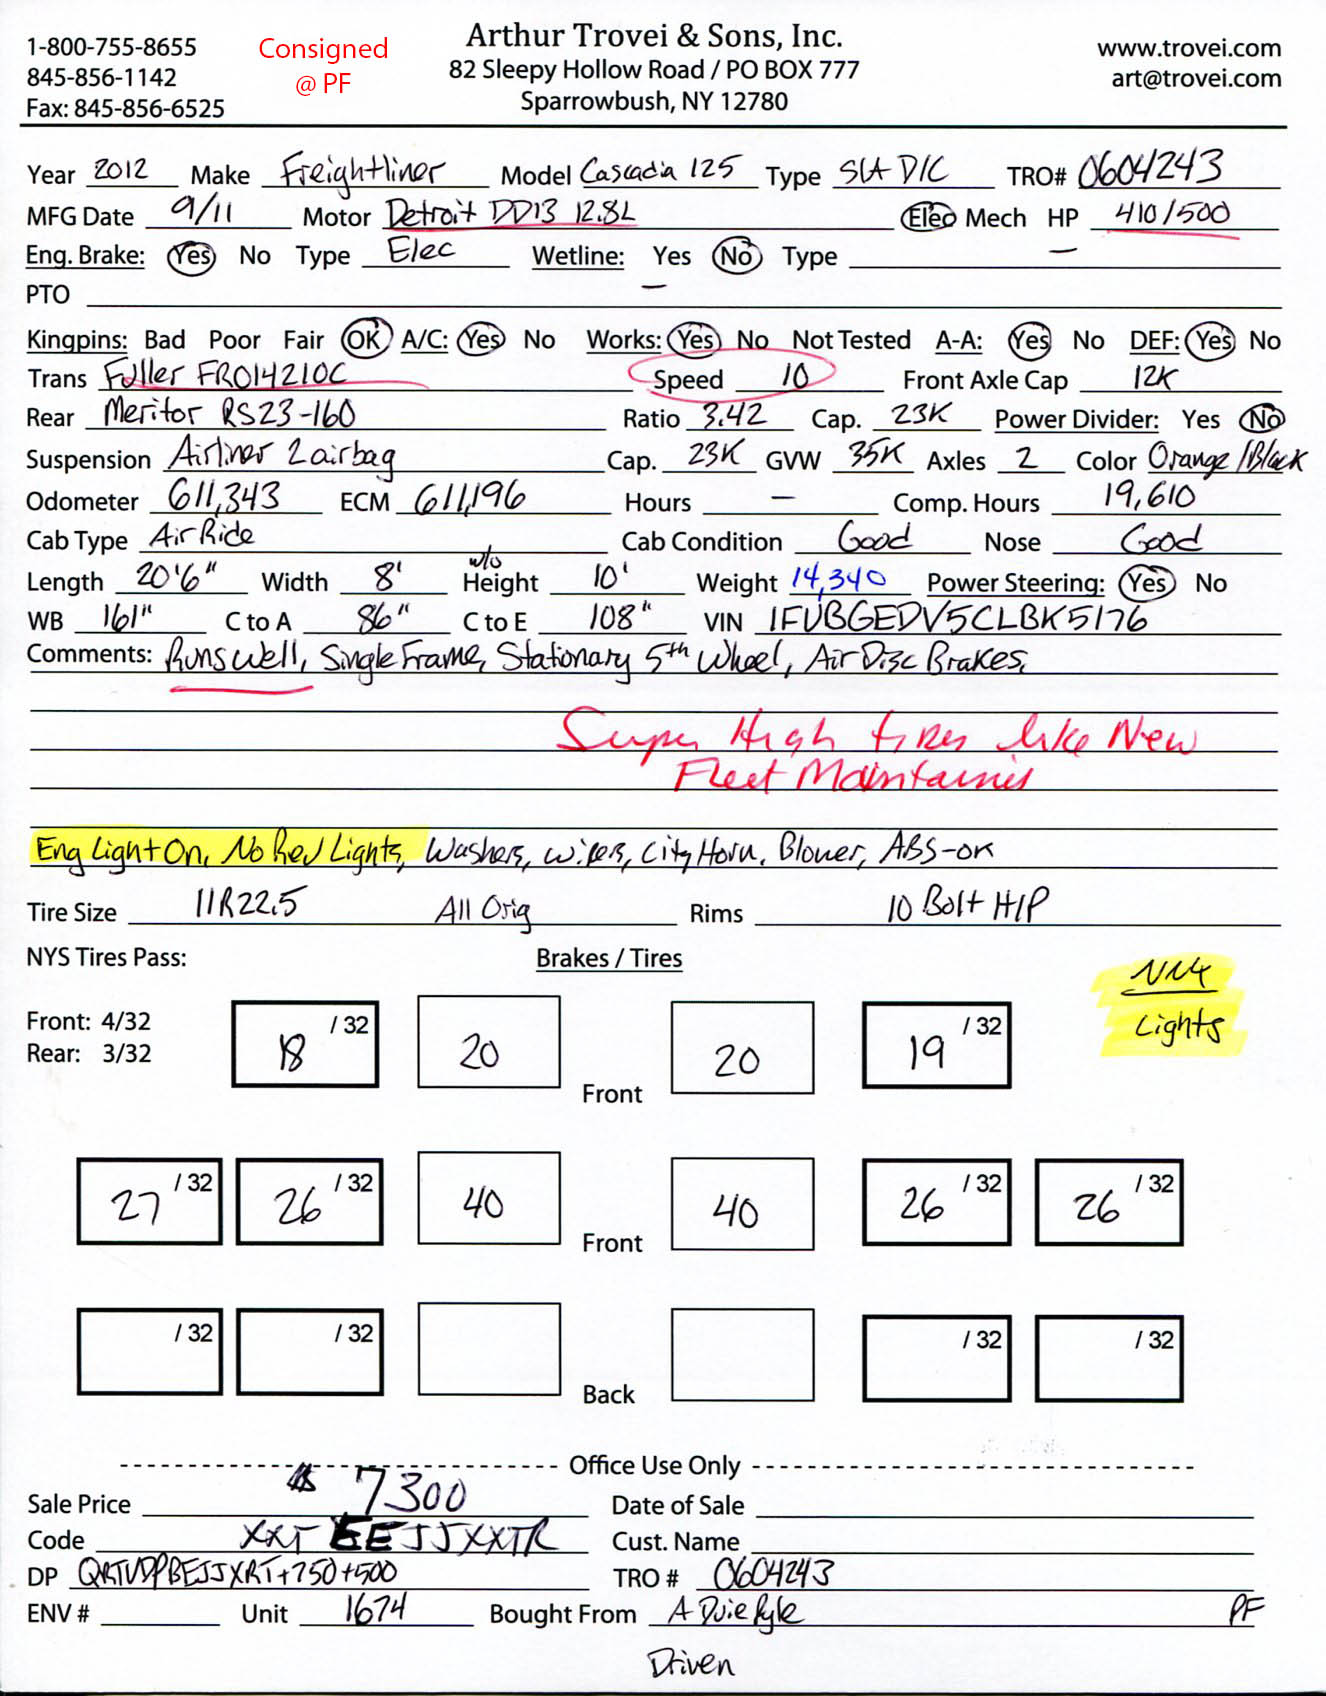 1-800-755-8655
845-856-1142
Fax: 845-856-6525
Consigned
@ PF
Arthur Trovei & Sons, Inc.
82 Sleepy Hollow Road / PO BOX 777
Sparrowbush, NY 12780
www.trovei.com
art@trovei.com
Year 2012 Make Freightliner Model Cascadia 125 Type S/A D/C TRO# 0604243
MFG Date 9/11 Motor Detroit DD13 12.8L Elec Mech HP 410/500
Eng. Brake: Yes No Type Elec Wetline: Yes No Type —
PTO —
Kingpins: Bad Poor Fair OK A/C: Yes No Works: Yes No Not Tested A-A: Yes No DEF: Yes No
Trans Fuller FRO14210C Speed 10 Front Axle Cap 12K
Rear Meritor RS23-160 Ratio 3.42 Cap. 23K Power Divider: Yes No
Suspension Airliner 2 airbag Cap. 23K GVW 35K Axles 2 Color Orange/Black
Odometer 611,343 ECM 611,196 Hours — Comp. Hours 19,610
Cab Type Air Ride Cab Condition Good Nose Good
Length 20'6" Width 8' w/o Height 10' Weight 14,340 Power Steering: Yes No
WB 161" C to A 86" C to E 108" VIN 1FUBGEDV5CLBK5176
Comments: Runs Well, Single Frame, Stationary 5th Wheel, Air Disc Brakes,
Super High tires like New
Fleet Maintained
Eng Light On, No Rev Lights, Washers, Wipers, City Horn, Blower, ABS-OK
Tire Size 11R22.5 All Orig Rims 10 Bolt H/P
NYS Tires Pass: Brakes / Tires
Front: 4/32
Rear: 3/32
Lights
18 /32 20 Front 20 19 /32
27 /32 26 /32 40 Front 40 26 /32 26 /32
/32 /32 Back /32 /32
Office Use Only
Sale Price $ 7300 Date of Sale
Code XXT EEJJXXTR Cust. Name
DP +750+500 TRO # 0604243
ENV # Unit 1674 Bought From A Duie Pyle PF
Driven